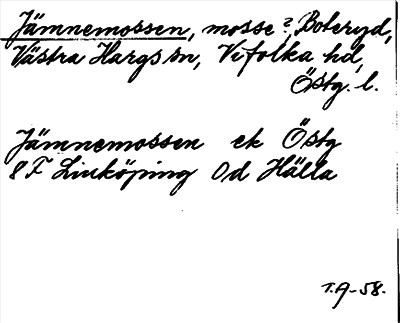 Jämnemossen, mosse?, Boteryd,
Västra Hargs sn, Vifolka hd,
Östg. l.
Jämnemossen ek Östg
8F Linköping Od Hälla
T.A-58.